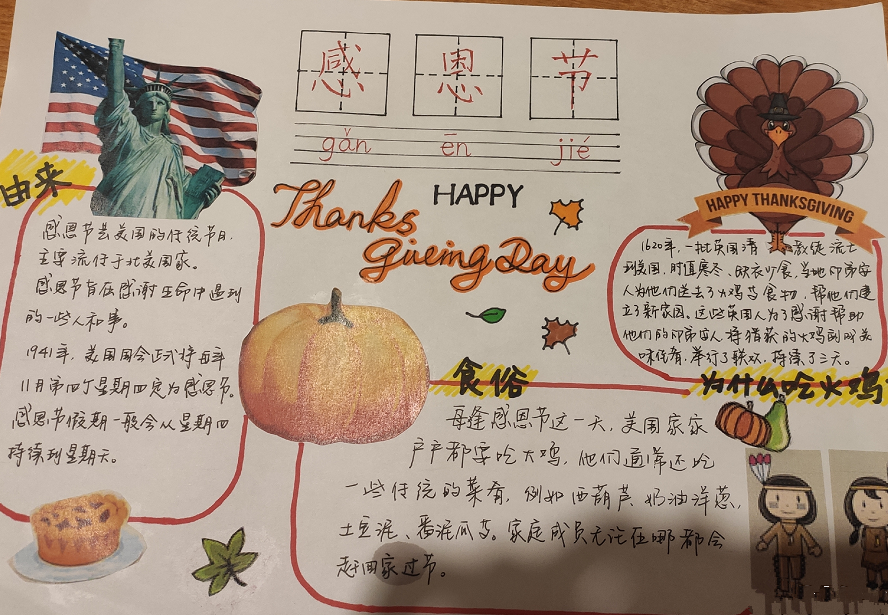 感恩节
gǎn ēn jié
HAPPY
Thanks
Giveing Day
HAPPY THANKSGIVING
由来
感恩节是美国的传统节日,
主要流行于北美国家。
感恩节旨在感谢生命中遇到
的一些人和事。
1941年,美国国会正式将每年
11月第四个星期四定为感恩节。
感恩节假期一般会从星期四
持续到星期天。
1620年,一批英国清教徒流亡
到美国,时值寒冬、缺衣少食,当地印第安
人为他们送去了火鸡等食物,帮他们建
立了新家园。这些英国人为了感谢帮助
他们的印第安人将猎获的火鸡制成美
味佳肴,举行了联欢,持续了三天。
为什么吃火鸡
食俗
每逢感恩节这一天,美国家家
户户都要吃火鸡,他们通常还吃
一些传统的菜肴,例如西葫芦、奶油洋葱、
土豆泥、番泥瓜等。家庭成员无论在哪都会
赶回家过节。